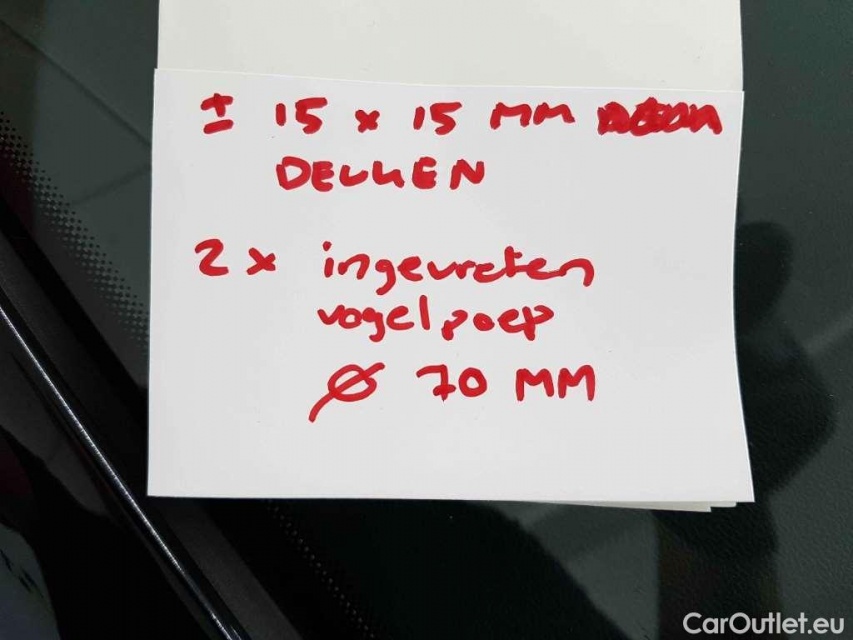 ± 15 x 15 MM
DEUKEN
2 x ingevreten
vogelpoep
Ø 70 MM
CarOutlet.eu